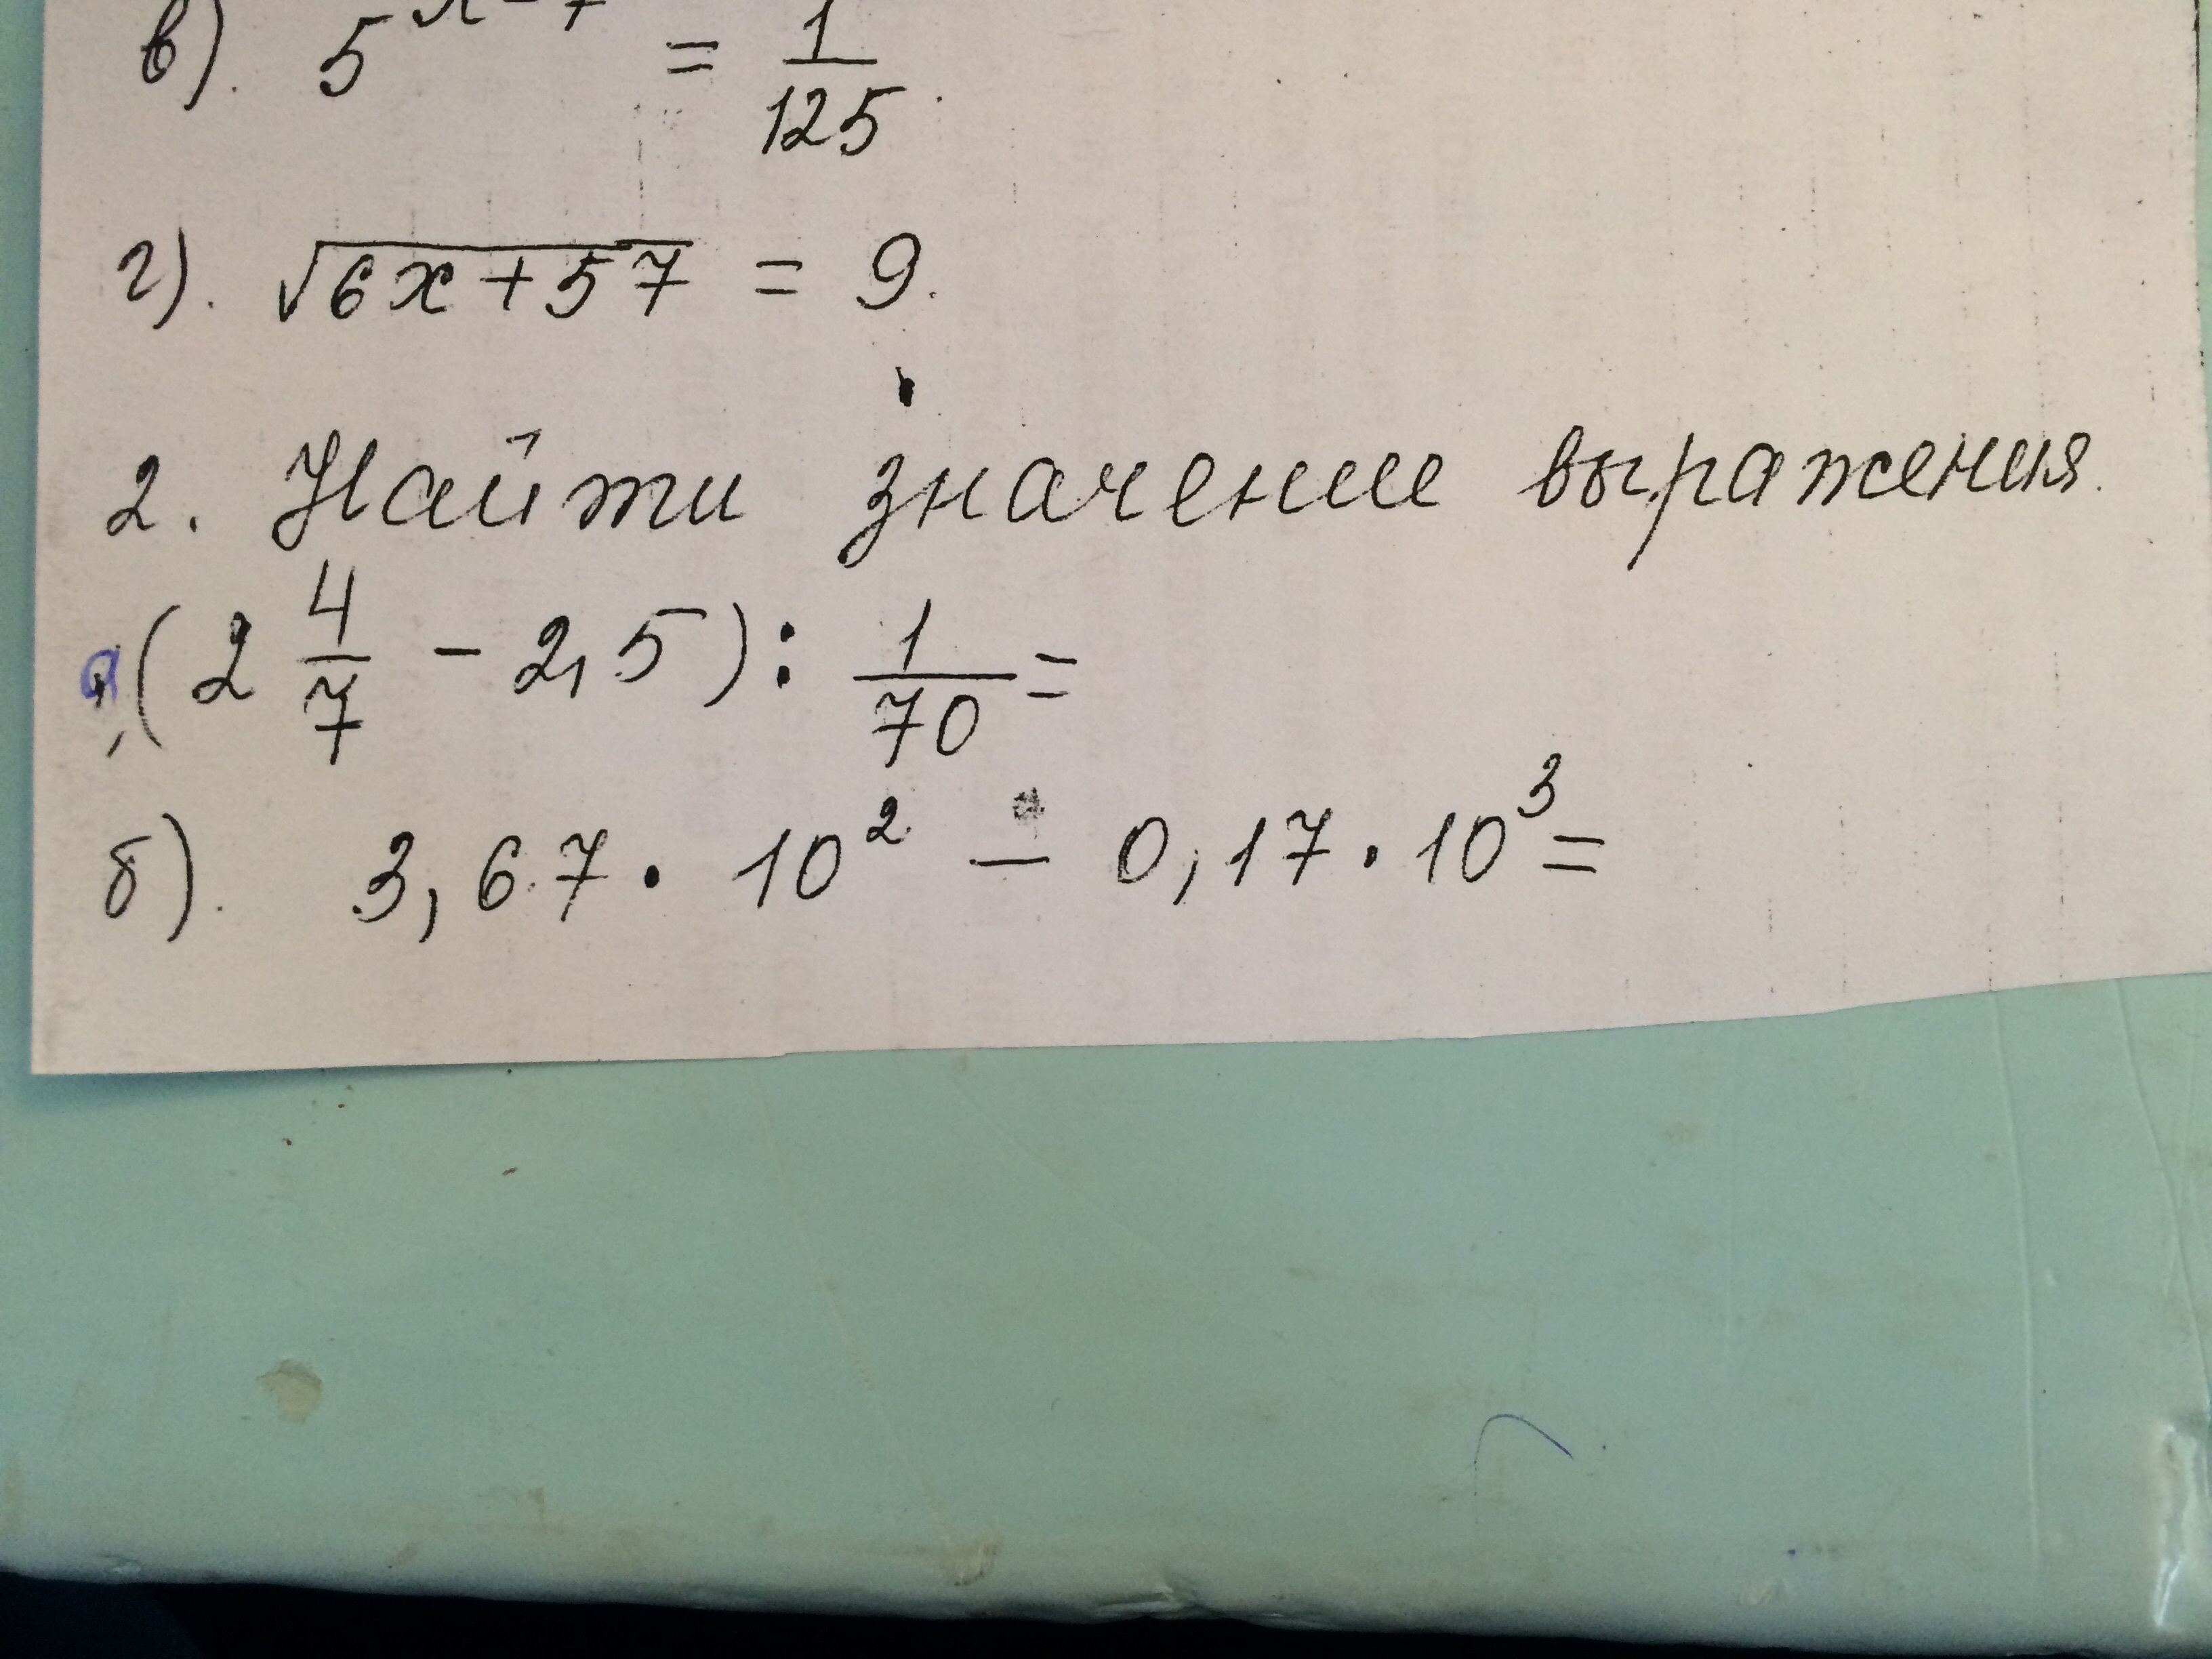 в). 5^{x-7} = \frac{1}{125}.
г). √(6x+57) = 9.
2. Найти значение выражения.
а, (2 \frac{4}{7} - 2,5) : \frac{1}{70} =
б). 3,67 · 10² - 0,17 · 10³ =